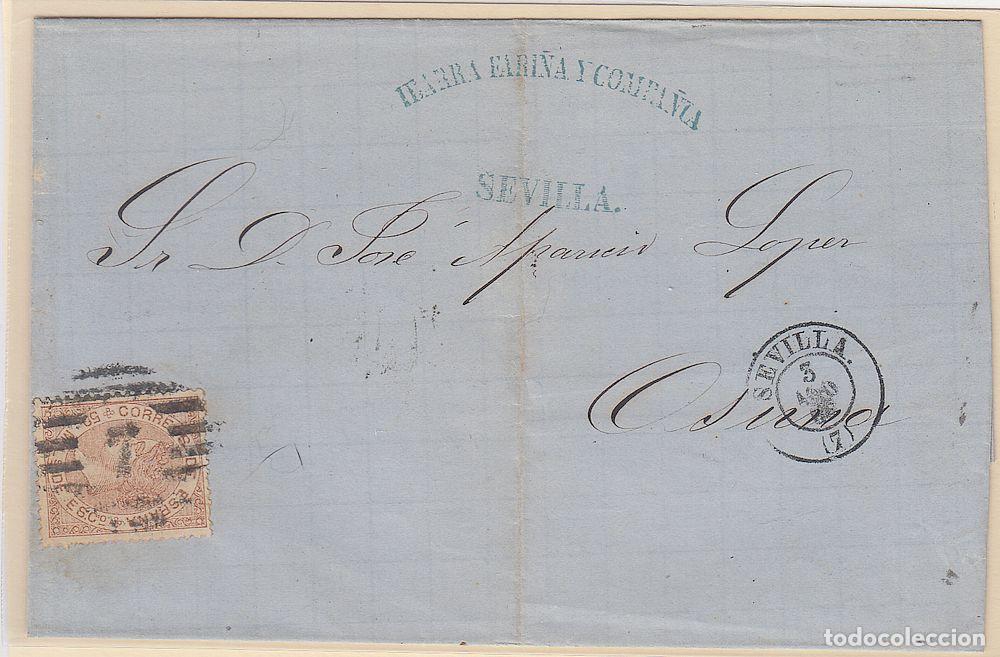 IBARRA FARIÑA Y COMPAÑIA
SEVILLA.
Sr D. José Aparicio López
Osuna
SEVILLA.
3
AGO
(7)
CORREOS
ESPAÑA
todocoleccion